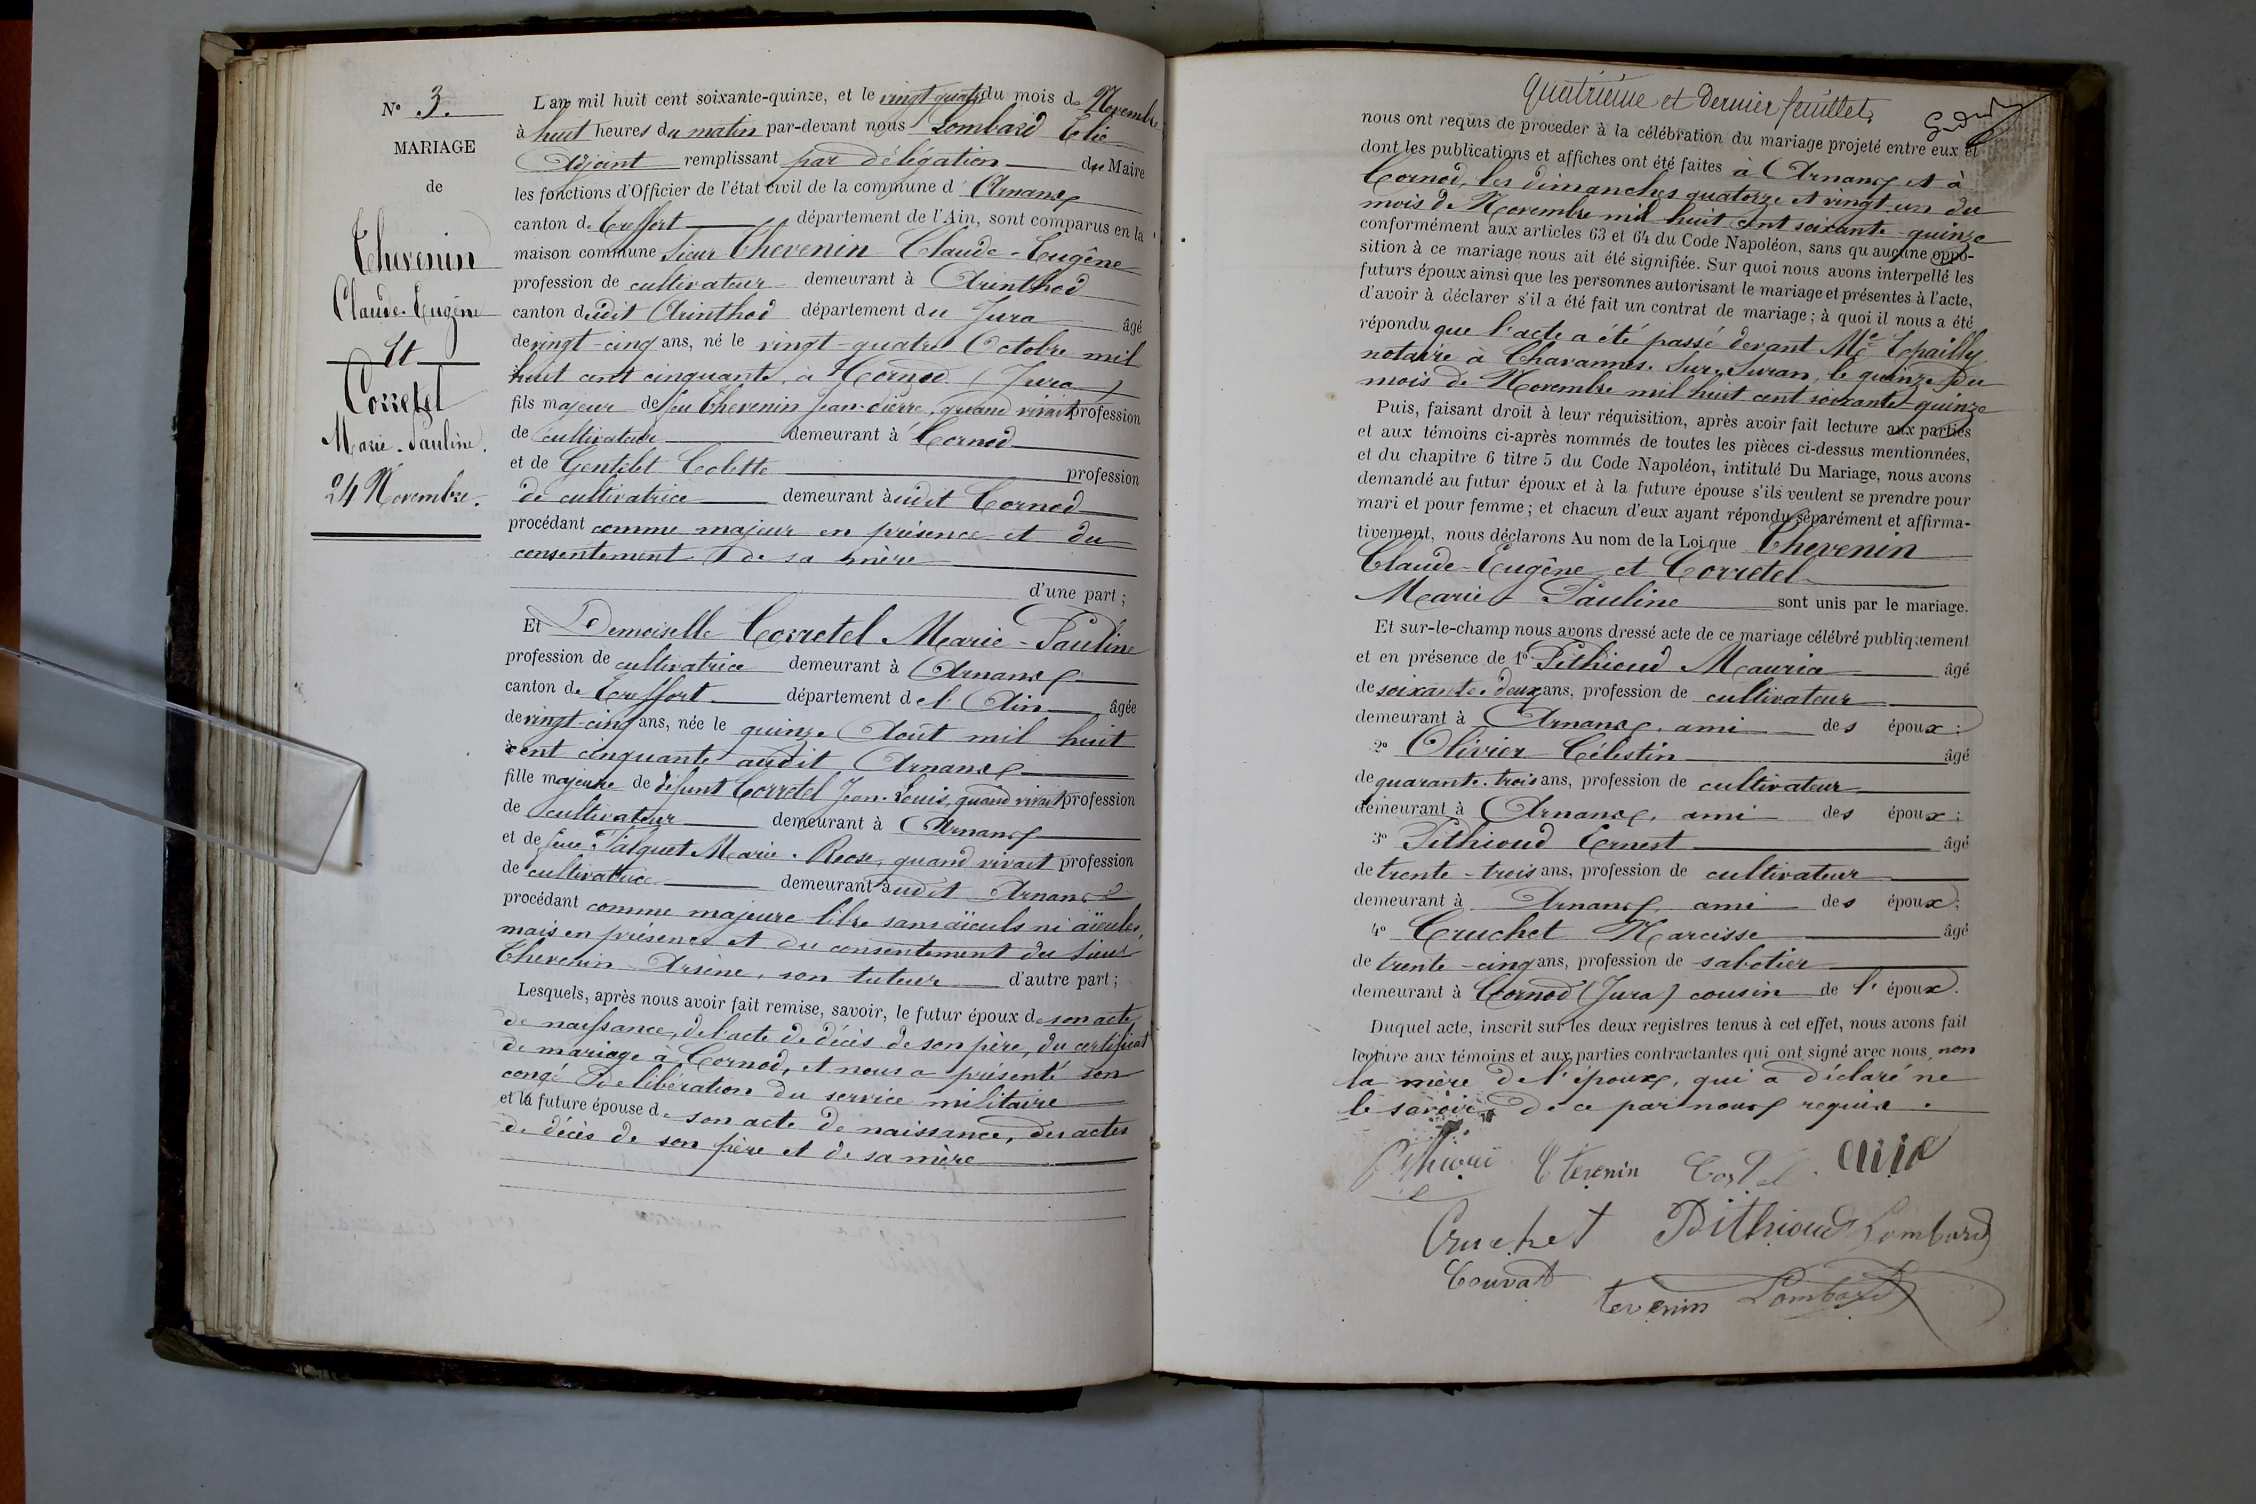 N° 3.
MARIAGE
de
Thevenin
Claude-Eugène
Et
Corretel
Marie-Pauline.
24 Novembre.
L'an mil huit cent soixante-quinze, et le vingt quatre du mois de Novembre
à huit heures du matin par-devant nous Lombard Elie
Adjoint remplissant par délégation du Maire
les fonctions d'Officier de l'état civil de la commune d'Arnans
canton de Treffort département de l'Ain, sont comparus en la
maison commune sieur Thevenin Claude-Eugène
profession de cultivateur demeurant à Arinthod
canton dudit Arinthod département du Jura âgé
de vingt-cinq ans, né le vingt-quatre Octobre mil
huit cent cinquante, à Cornod (Jura)
fils majeur de feu Thevenin Jean-Pierre, quand vivait profession
de cultivateur demeurant à Cornod
et de Gentelet Colette profession
de cultivatrice demeurant audit Cornod
procédant comme majeur en présence et du
consentement de sa mère
d'une part;
Et Demoiselle Corretel Marie-Pauline
profession de cultivatrice demeurant à Arnans
canton de Treffort département de l'Ain âgée
de vingt-cinq ans, née le quinze Août mil huit
cent cinquante audit Arnans
fille majeure de défunt Corretel Jean-Louis, quand vivait profession
de cultivateur demeurant à Arnans
et de feue Palquet Marie-Rose, quand vivait profession
de cultivatrice demeurant audit Arnans
procédant comme majeure libre sans aïeuls ni aïeules,
mais en présence et du consentement du sieur
Thevenin Arsène, son tuteur d'autre part;
Lesquels, après nous avoir fait remise, savoir, le futur époux de son acte
de naissance, de l'acte de décès de son père, du certificat
de mariage à Cornod, et nous a présenté son
congé de libération du service militaire
et la future épouse de son acte de naissance, des actes
de décès de son père et de sa mère
Quatrième et dernier feuillet.
nous ont requis de procéder à la célébration du mariage projeté entre eux et
dont les publications et affiches ont été faites à Arnans et à
Cornod, les dimanches quatorze et vingt-un du
mois de Novembre mil huit cent soixante-quinze
conformément aux articles 63 et 64 du Code Napoléon, sans qu'aucune oppo-
sition à ce mariage nous ait été signifiée. Sur quoi nous avons interpellé les
futurs époux ainsi que les personnes autorisant le mariage et présentes à l'acte,
d'avoir à déclarer s'il a été fait un contrat de mariage; à quoi il nous a été
répondu que l'acte a été passé devant Me
notaire à Chavannes-sur-Suran, le quinze du
mois de Novembre mil huit cent soixante-quinze
Puis, faisant droit à leur réquisition, après avoir fait lecture aux parties
et aux témoins ci-après nommés de toutes les pièces ci-dessus mentionnées,
et du chapitre 6 titre 5 du Code Napoléon, intitulé Du Mariage, nous avons
demandé au futur époux et à la future épouse s'ils veulent se prendre pour
mari et pour femme; et chacun d'eux ayant répondu séparément et affirma-
tivement, nous déclarons Au nom de la Loi que Thevenin
Claude-Eugène et Corretel
Marie-Pauline sont unis par le mariage.
Et sur-le-champ nous avons dressé acte de ce mariage célébré publiquement
et en présence de 1° Pithioud Mauria âgé
de soixante-deux ans, profession de cultivateur
demeurant à Arnans, ami des époux;
2° Olivier Célestin âgé
de quarante-trois ans, profession de cultivateur
demeurant à Arnans, ami des époux;
3° Pithioud Ernest âgé
de trente-trois ans, profession de cultivateur
demeurant à Arnans, ami des époux;
4° Cruchet Narcisse âgé
de trente-cinq ans, profession de sabotier
demeurant à Cornod (Jura) cousin de l'époux.
Duquel acte, inscrit sur les deux registres tenus à cet effet, nous avons fait
lecture aux témoins et aux parties contractantes qui ont signé avec nous, non
la mère de l'époux, qui a déclaré ne
le savoir de ce par nous requise.
Tévenin
Cruchet Pithioud Lombard
Couvat
tevenin Lombard